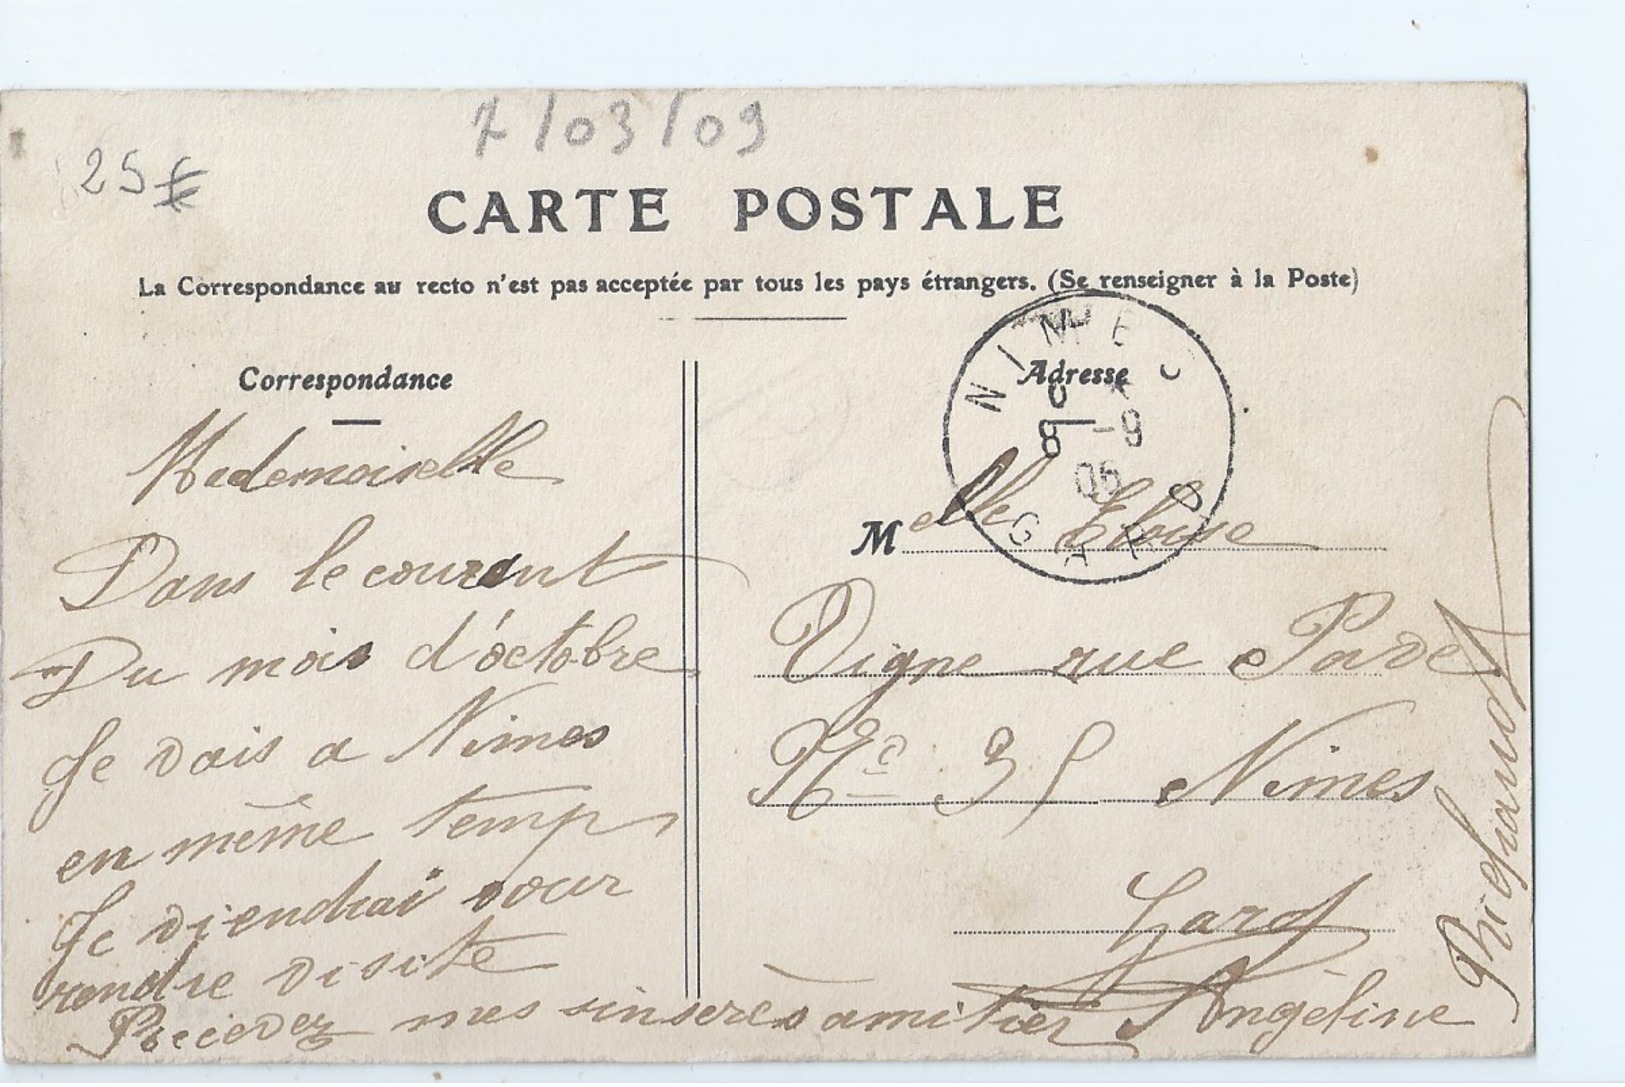 7/03/09
25€
CARTE POSTALE
La Correspondance au recto n'est pas acceptée par tous les pays étrangers. (Se renseigner à la Poste)
Correspondance
Mademoiselle
Dans le courant
Du mois d'octobre
Je vais a Nimes
en même temp
Je viendrai vour
rendre visite
Recevez mes sinseres amitier Angeline
Adresse
NIMES
8 -9
05
GARD
Melle Eloise
Digne rue Pavet
No 35 Nimes
Gard